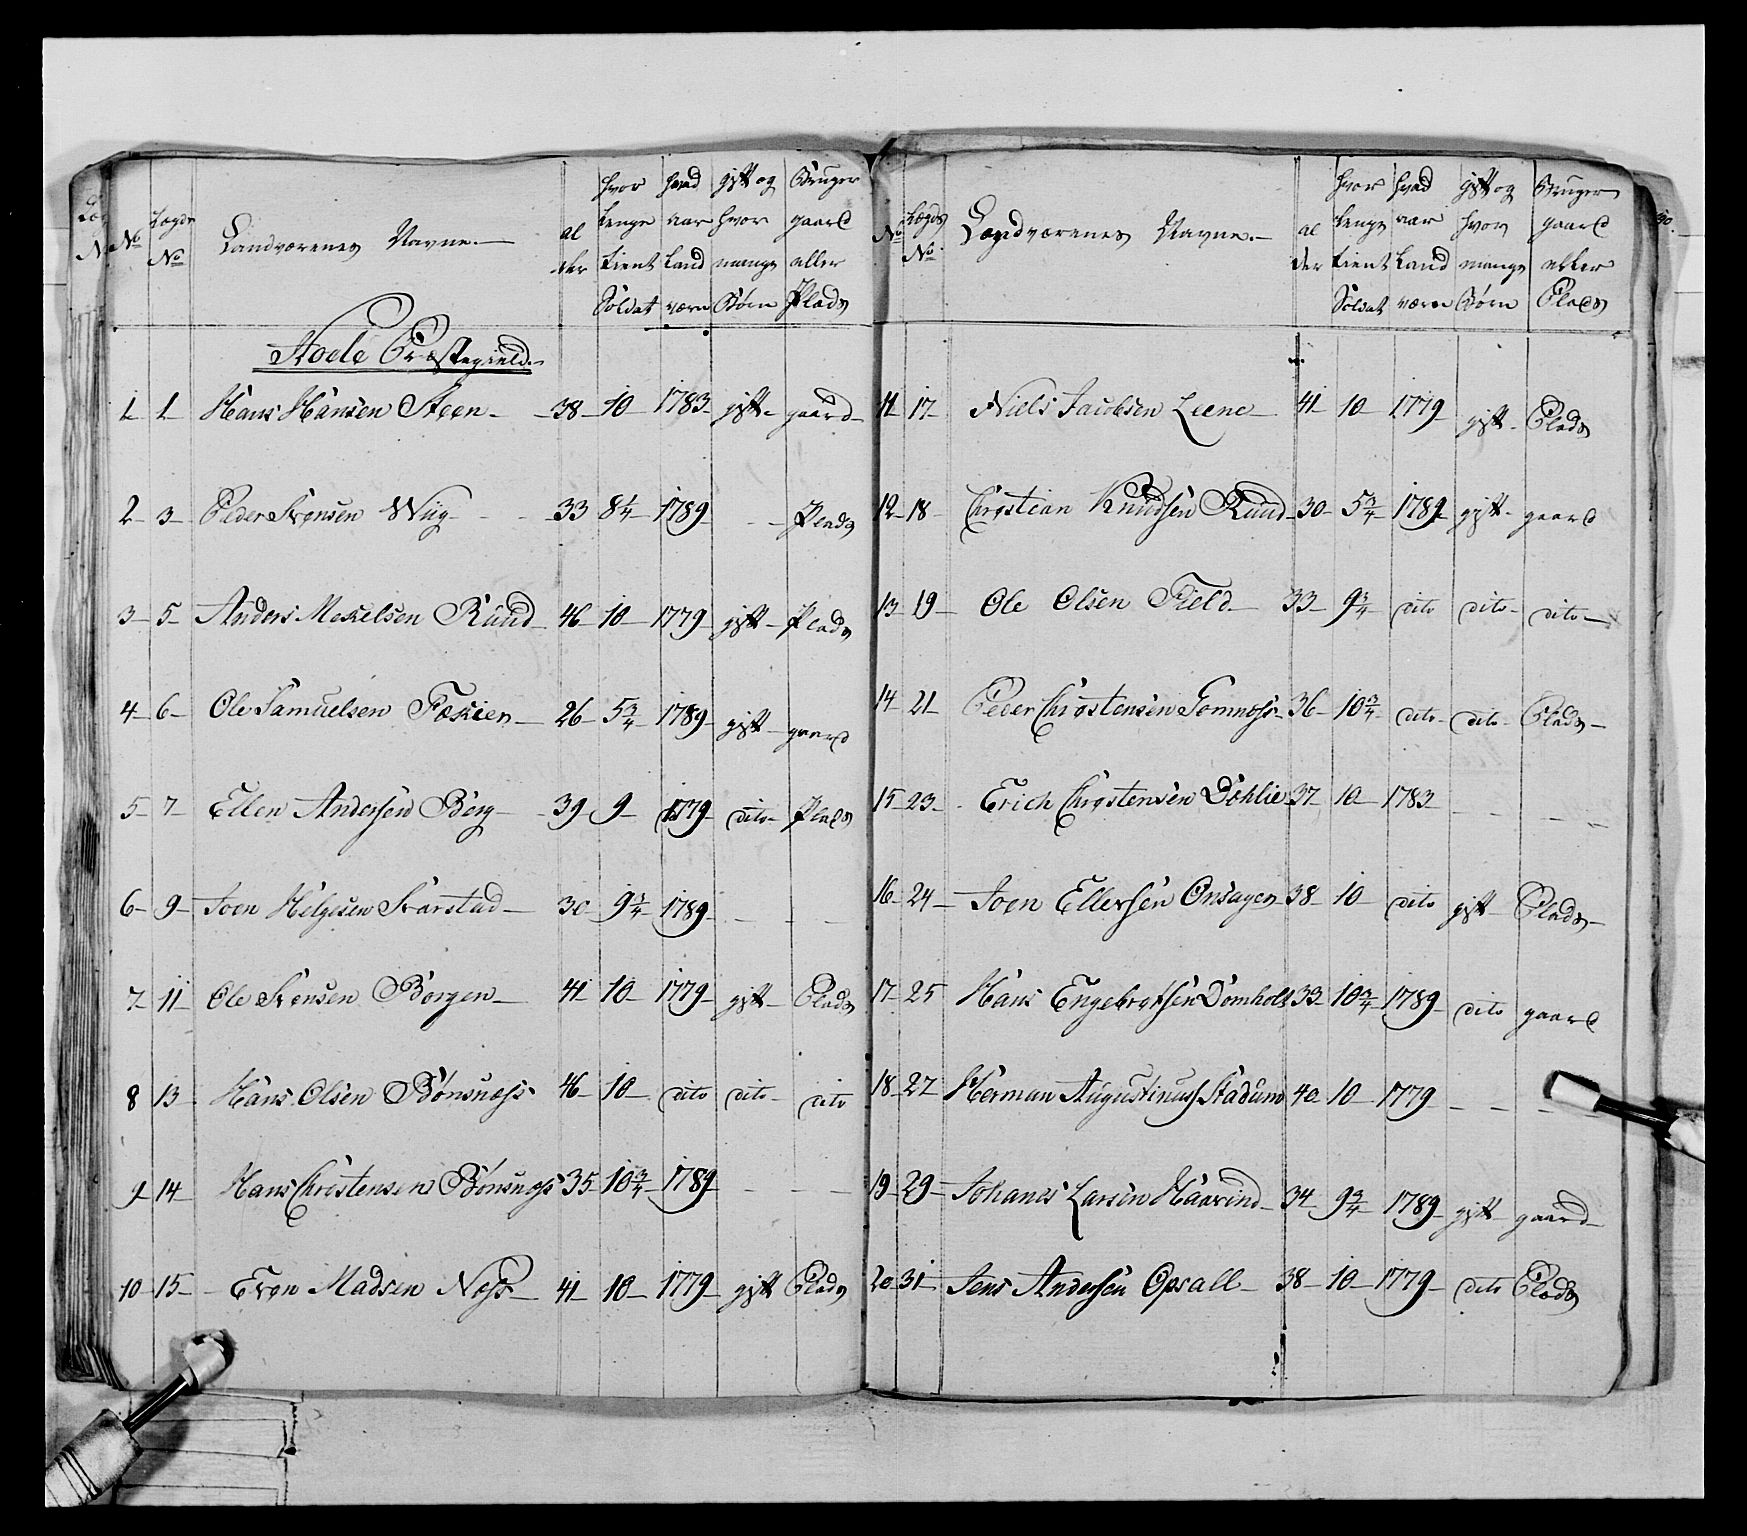 No Lægds No Landværenes Navne. al der hvor lenge tient Soldat hvad aar Land værn gift og hvor mange Børn Bruger gaard eller Plads
Hoele Præstegield
1 1 Hans Hansen Steen 38 10 1783 gift gaard
2 3 Peder Svensen Wiig 33 8¼ 1789 - Plads
3 5 Anders Mekelsen Ruud 46 10 1779 gift Plads
4 6 Ole Samuelsen 26 5¾ 1789 gift gaard
5 7 Ellen Andersen Berg 39 9 1779 dito Plads
6 9 Joen Helgesen 30 9¾ 1789 - -
7 11 Ole Svensen Borgen 41 10 1779 gift Plads
8 13 Hans Olsen Bønsnæss 46 10 dito dito dito
9 14 Hans Christensen Bønsnæss 35 10¾ 1789 - -
10 15 Even Madsen Næss 41 10 1779 gift Plads
No Lægds No Landværenes Navne. al der hvor lenge tient Soldat hvad aar Land værn gift og hvor mange Børn Bruger gaard eller Plads
11 17 Niels Jacobsen Leene 41 10 1779 gift Plads
12 18 Christian Knudsen Ruud 30 5¾ 1789 gift gaard
13 19 Ole Olsen Field 33 9¾ dito dito dito
14 21 Peder Christensen 36 10¾ dito dito Plads
15 23 Erich Christensen Døhlie 37 10 1783 - -
16 24 Joen Ellersen Onsager 38 10 dito gift Plads
17 25 Hans Engebretsen Domholt 33 10¾ 1789 dito gaard
18 27 Herman Augustinuss Stadum 40 10 1779 - -
19 29 Johanes Larsen Haarind 34 9¾ 1789 gift gaard
20 31 Jens Andersen Opsall 38 10 1779 dito Plads